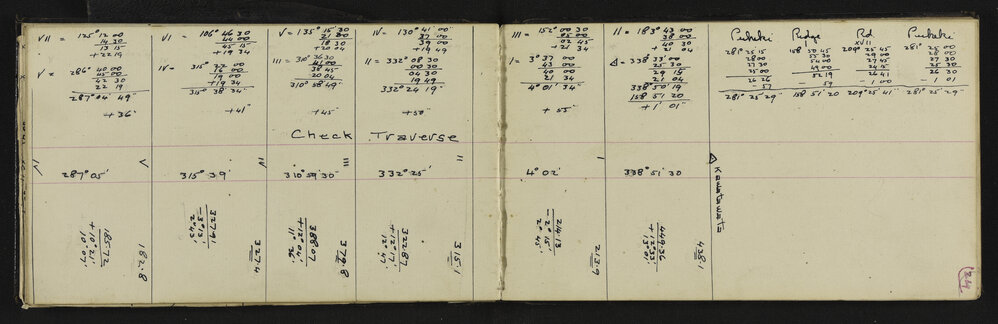 VII = 125° 12 00
14 30
13 15
+ 22 19
V = 286° 40 00
45 00
42 30
22 19
287° 04' 49"
+ 36"
VI = 106° 46 30
44 00
45 15
+ 19 34
IV = 315° 22 00
16 00
19 00
+ 19 34
315° 38' 34"
+ 41"
V = 135° 15 30
21 00
18 30
+ 20 04
III = 310° 36 30
41 00
38 45
20 04
310° 58' 49"
+ 45"
IV = 130° 41 00
37 00
39 00
+ 19 49
II = 332° 08 30
00 30
04 30
19 49
332° 24 19"
+ 50"
III = 152° 00 30
05 00
02 45
+ 21 34
I = 3° 37 00
43 00
40 00
21 34
4° 01' 34"
+ 55"
II = 183° 43 00
38 00
40 30
+ 21 04
Δ = 338° 33' 00
25 30
29 15
21 04
338° 50' 19
158 51 20
+ 1' 01"
Pukeki Ridge Rd Pukeki
XVII
281° 25 15
28 00
27 30
25 00
26 26
- 57
281° 25' 29"
158° 50 45
55 30
54 00
49 00
52 19
- 59
158 51' 20
209° 25 45
29 00
27 45
24 15
26 41
- 1 00
209° 25' 41"
281° 25 00
28 00
27 30
25 30
26 30
1 01
281° 25' 29"
Check Traverse
IV
287° 05'
V
315° 39'
IV
310° 59' 30"
III
332° 25'
II
4° 02'
I
338° 51' 30
Δ Kawatawata
185.72
+ 10° 21'
10° 07'
182.8
327.91
- 3° 13'
2° 43'
327.4
388.07
+ 12° 04'
11° 36
379.8
322.87
+ 12° 41'
12° 47'
315.1
214.13
- 2° 15'
2° 45'
213.9
449.36
+ 12° 33'
13° 01'
438.1
24